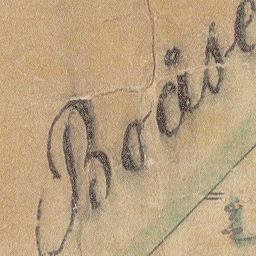 Boåse